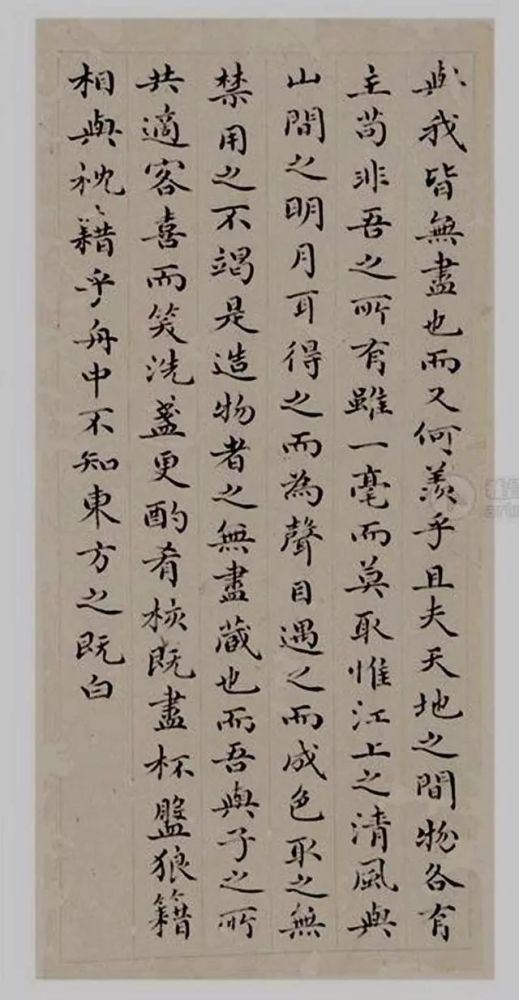 與我皆無盡也而又何羨乎且夫天地之間物各有
主苟非吾之所有雖一毫而莫取惟江上之清風與
山間之明月耳得之而為聲目遇之而成色取之無
禁用之不竭是造物者之無盡藏也而吾與子之所
共適客喜而笑洗盞更酌肴核既盡杯盤狼籍
相與枕籍乎舟中不知東方之既白